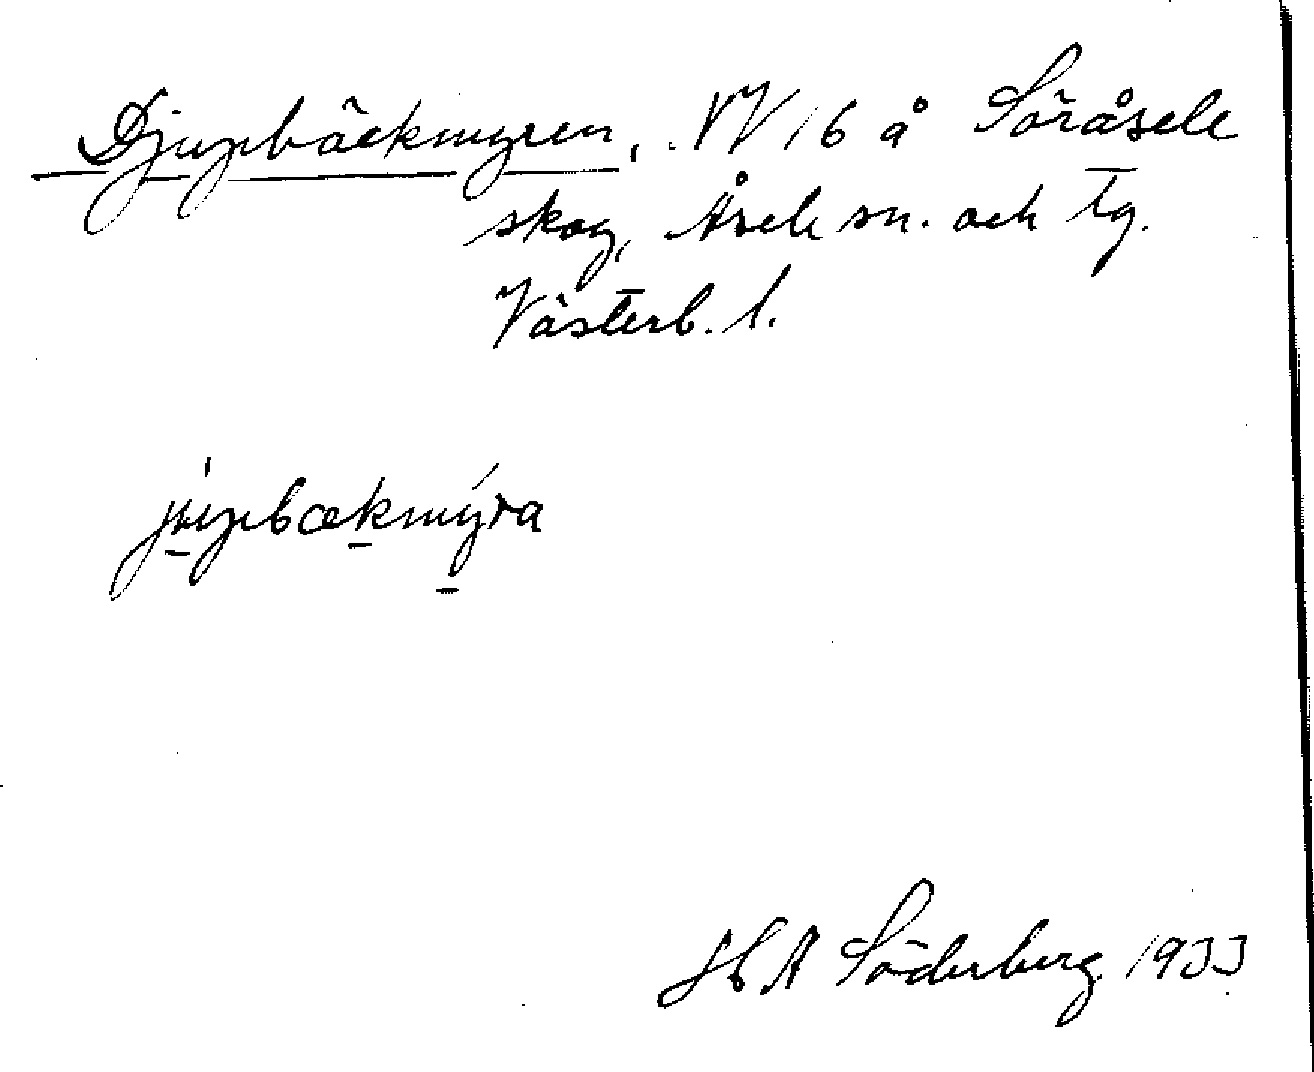 Djupbäckmyren, NV 16 å Söråsele
skog, Åsele sn. och tg.
Västerb. l.
jupbækmýra
H A Söderberg 1933